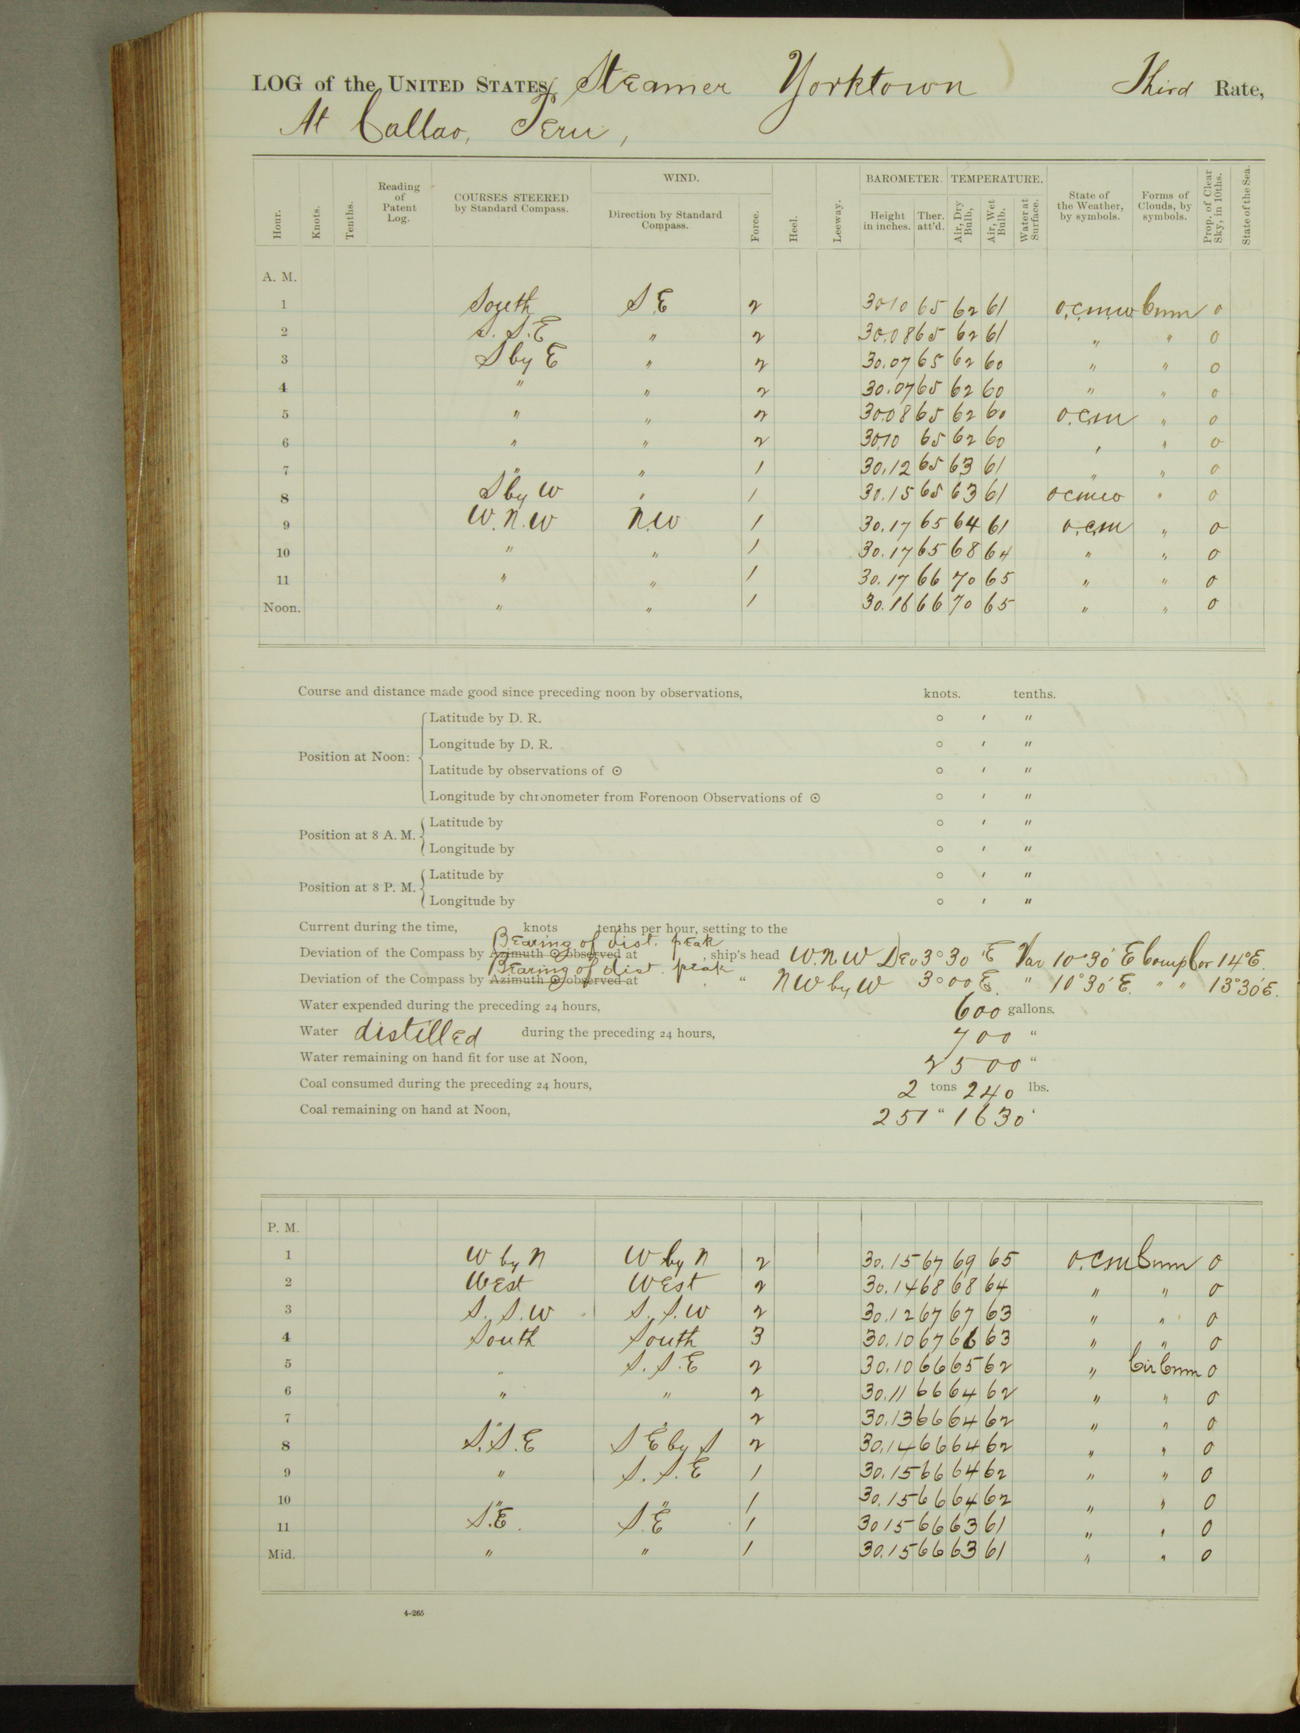 LOG of the UNITED STATES Steamer Yorktown Third Rate,
At Callao, Peru,
Hour. Knots. Tenths. Reading of Patent Log. COURSES STEERED by Standard Compass. WIND. Direction by Standard Compass. Force. Heel. Leeway. BAROMETER. Height in inches. Ther. att'd. TEMPERATURE. Air, Dry Bulb, Air, Wet Bulb. Water at Surface. State of the Weather, by symbols. Forms of Clouds, by symbols. Prop. of Clear Sky, in 10ths. State of the Sea.
A. M.
1 South S.E 2 30.10 65 62 61 o.c.m.w Cum 0
2 S. S. E " 2 30.08 65 62 61 " " 0
3 S by E " 2 30.07 65 62 60 " " 0
4 " " 2 30.07 65 62 60 " " 0
5 " " 2 30.08 65 62 60 o.c.m " 0
6 " " 2 30.10 65 62 60 " " 0
7 " " 1 30.12 65 63 61 " " 0
8 S by W " 1 30.15 65 63 61 o c m w " 0
9 W. N. W N.W 1 30.17 65 64 61 o.c.m " 0
10 " " 1 30.17 65 68 64 " " 0
11 " " 1 30.17 66 70 65 " " 0
Noon. " " 1 30.16 66 70 65 " " 0
Course and distance made good since preceding noon by observations, knots. tenths.
Position at Noon: Latitude by D. R. ° ′ ″
Longitude by D. R. ° ′ ″
Latitude by observations of ☉ ° ′ ″
Longitude by chronometer from Forenoon Observations of ☉ ° ′ ″
Position at 8 A. M. Latitude by ° ′ ″
Longitude by ° ′ ″
Position at 8 P. M. Latitude by ° ′ ″
Longitude by ° ′ ″
Current during the time, knots tenths per hour, setting to the
Bearing of dist. peak
Deviation of the Compass by Azimuth ☉ observed at , ship's head W.N.W Dev 3° 30' E Var 10° 30' E Comp Cor 14° E.
Bearing of dist. peak
Deviation of the Compass by Azimuth ☉ observed at , " NW by W 3° 00 E. " 10° 30' E. " " 13° 30' E.
Water expended during the preceding 24 hours, 600 gallons.
Water distilled during the preceding 24 hours, 700 "
Water remaining on hand fit for use at Noon, 2500 "
Coal consumed during the preceding 24 hours, 2 tons 240 lbs.
Coal remaining on hand at Noon, 251 " 1630 "
P. M.
1 W by N W by N 2 30.15 67 69 65 o.c.m Cum 0
2 West West 2 30.14 68 68 64 " " 0
3 S. S. W S. S. W 2 30.12 67 67 63 " " 0
4 South South 3 30.10 67 66 63 " " 0
5 " S. S. E 2 30.10 66 65 62 " Cir Cum 0
6 " " 2 30.11 66 64 62 " " 0
7 " " 2 30.13 66 64 62 " " 0
8 S. S. E S E by S 2 30.14 66 64 62 " " 0
9 " S. S. E 1 30.15 66 64 62 " " 0
10 " " 1 30.15 66 64 62 " " 0
11 S.E. S.E 1 30 15 66 63 61 " " 0
Mid. " " 1 30.15 66 63 61 " " 0
4-265